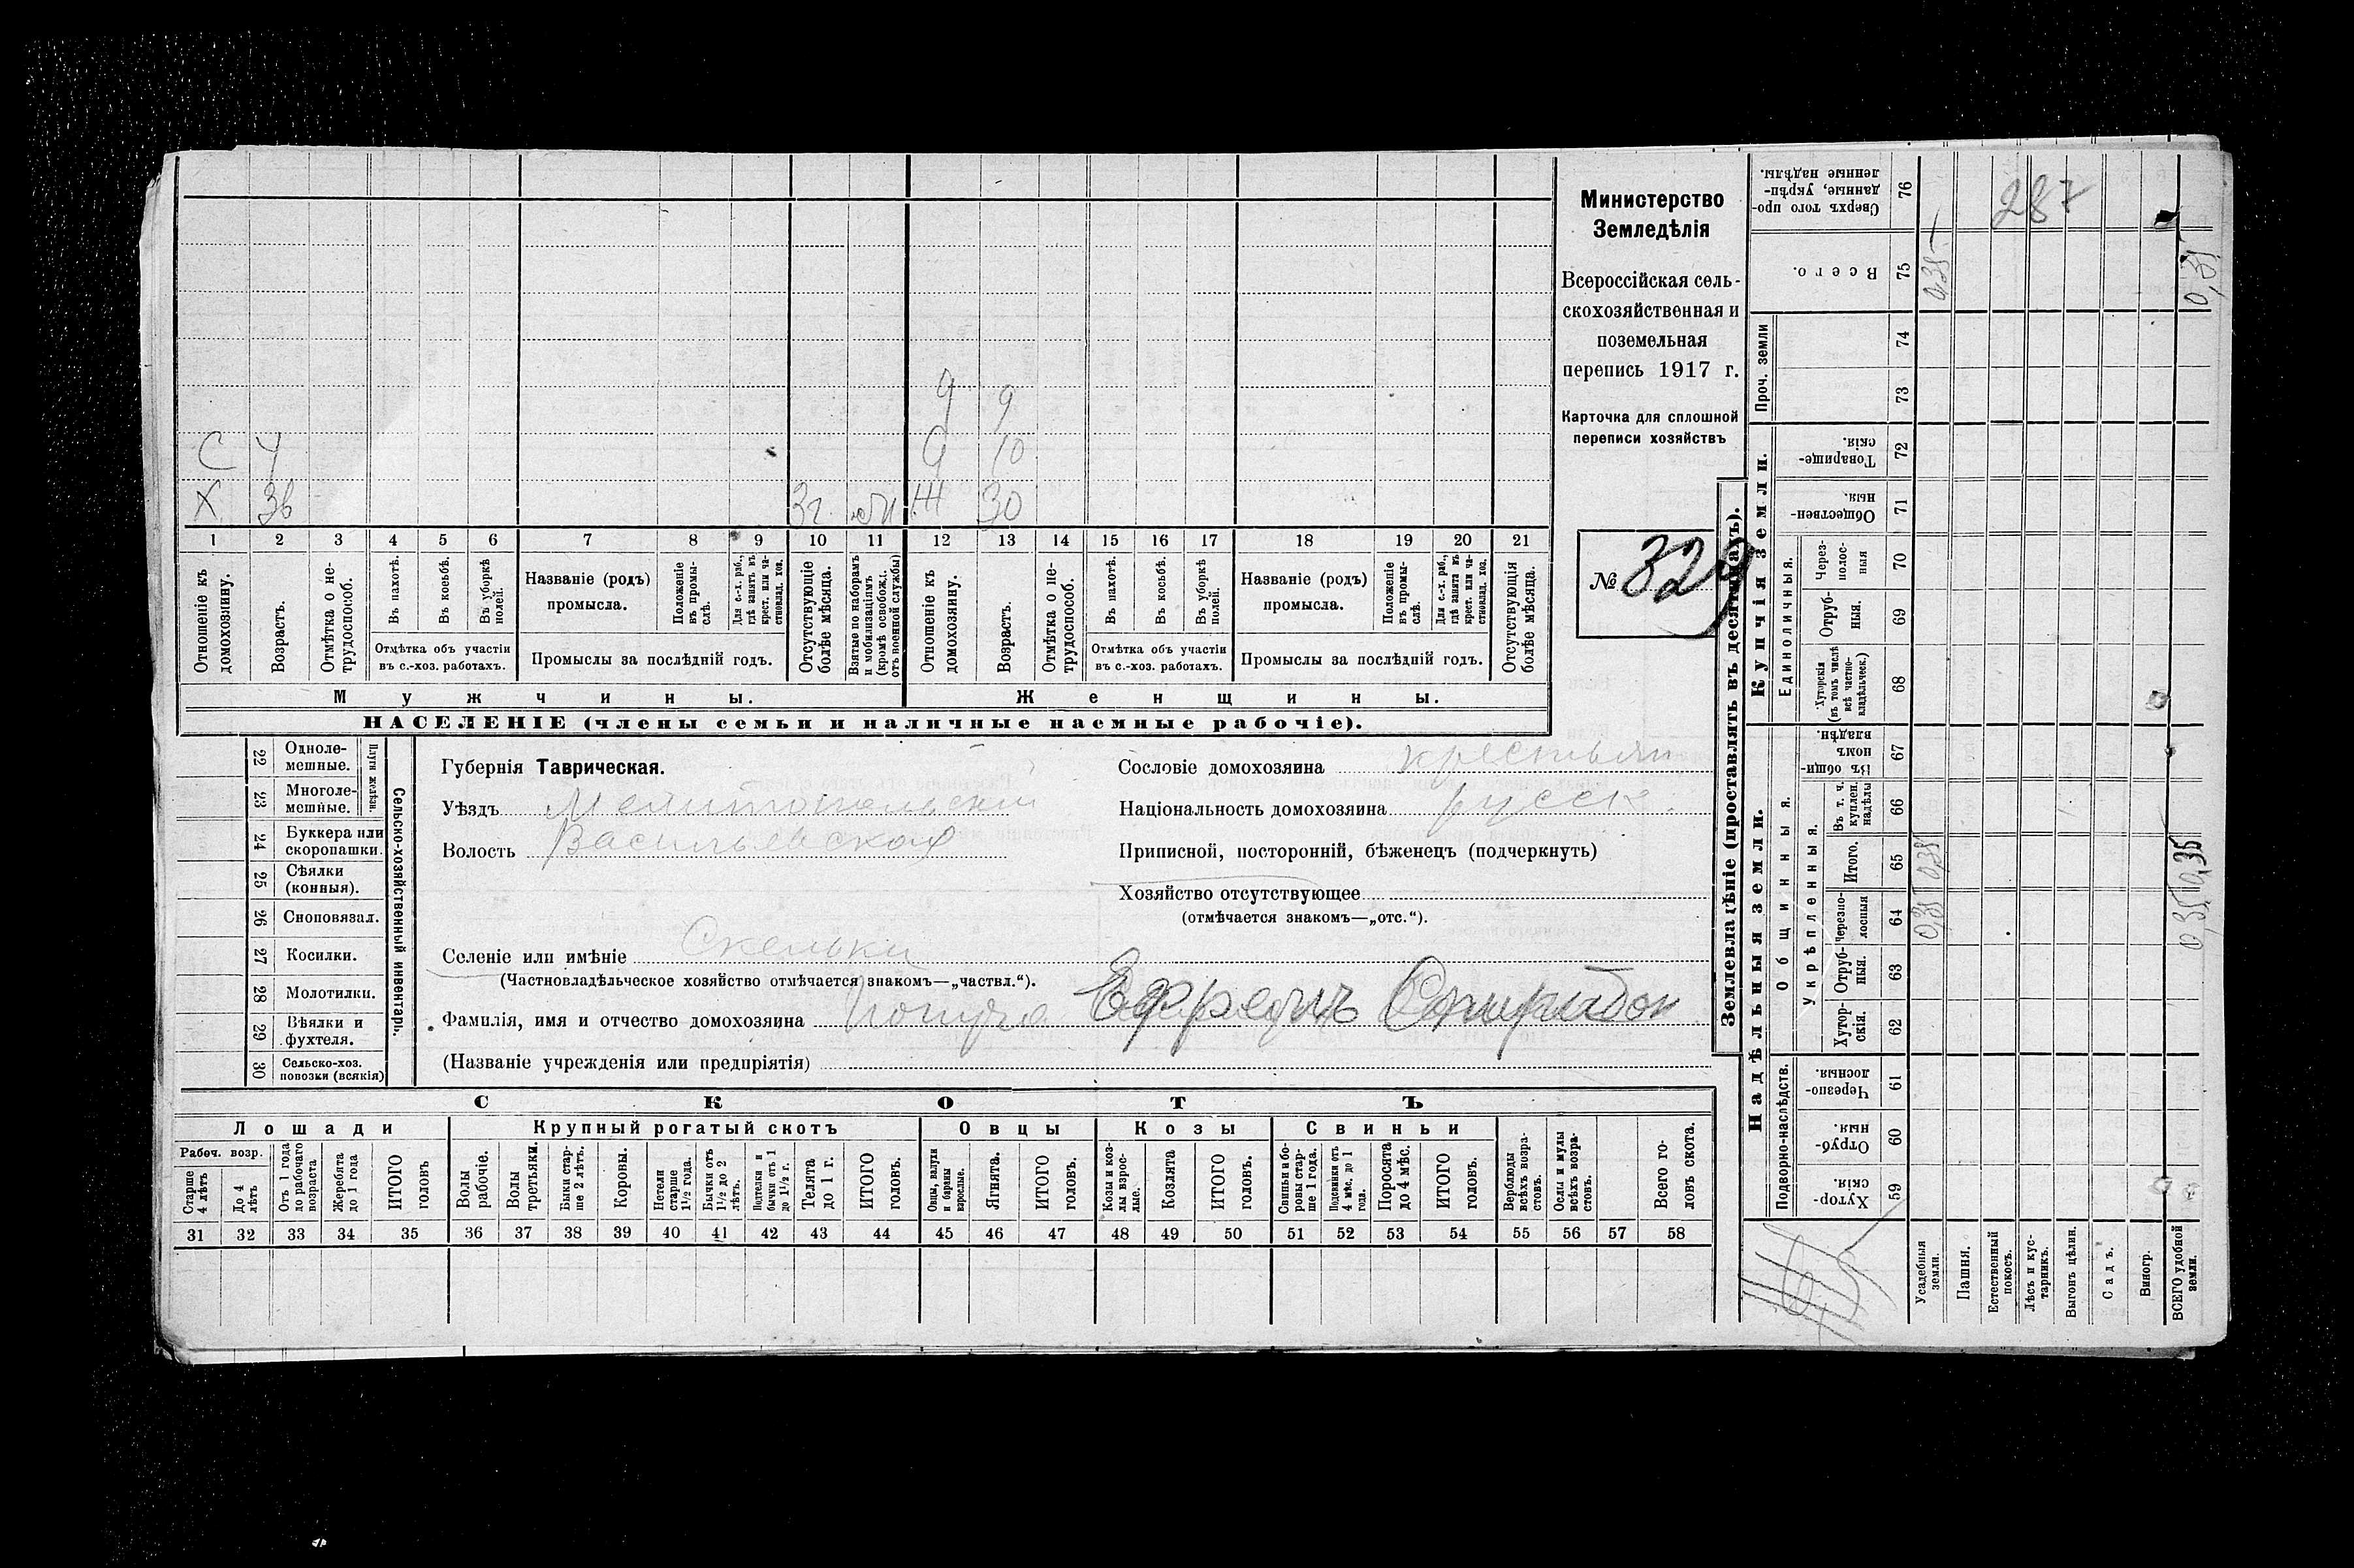 Министерство
Земледѣлія
Всероссійская сель-
скохозяйственная и
поземельная
перепись 1917 г.
Карточка для сплошной
переписи хозяйствъ
№ 329
Д 9
Д 10
С 4
Х 36 3 г. моб Ж 30
1 2 3 4 5 6 7 8 9 10 11 12 13 14 15 16 17 18 19 20 21
Отношеніе къ домохозяину.
Возрастъ.
Отмѣтка о не-трудоспособ.
Въ пахотѣ.
Въ косьбѣ.
Въ уборкѣ полей.
Отмѣтка объ участіи
въ с.-хоз. работахъ.
Названіе (родъ)
промысла.
Положеніе въ промы-слѣ.
Для с.-х. раб., гдѣ занятъ въ крест. или ча-стновлад. хоз.
Промыслы за послѣдній годъ.
Отсутствующіе болѣе мѣсяца.
Взятые по наборамъ и мобилизаціямъ (кромѣ освобожд. отъ военной службы)
Отношеніе къ домохозяину.
Возрастъ.
Отмѣтка о не-трудоспособ.
Въ пахотѣ.
Въ косьбѣ.
Въ уборкѣ полей.
Отмѣтка объ участіи
въ с.-хоз. работахъ.
Названіе (родъ)
промысла.
Положеніе въ промы-слѣ.
Для с.-х. раб., гдѣ занята въ крест. или ча-стновлад. хоз.
Промыслы за послѣдній годъ.
Отсутствующія болѣе мѣсяца.
Мужчины. Женщины.
НАСЕЛЕНІЕ (члены семьи и наличные наемные рабочіе).
22 Одноле-мешные.
23 Многоле-мешные.
Плуги желѣзн.
24 Буккера или скоропашки.
25 Сѣялки (конныя).
26 Сноповязал.
27 Косилки.
28 Молотилки.
29 Вѣялки и фухтеля.
30 Сельско-хоз. повозки (всякія)
Сельско-хозяйственный инвентарь.
Губернія Таврическая.
Уѣздъ Мелитопольскій
Волость Васильевская
Селеніе или имѣніе Скельки
(Частновладѣльческое хозяйство отмѣчается знакомъ—„частвл.“).
Фамилія, имя и отчество домохозяина Ефремъ Спиридон
(Названіе учрежденія или предпріятія)
Сословіе домохозяина крестьян
Національность домохозяина русск.
Приписной, посторонній, бѣженецъ (подчеркнуть)
Хозяйство отсутствующее
(отмѣчается знакомъ—„отс.“).
СКОТЪ
Лошади Крупный рогатый скотъ Овцы Козы Свиньи
Рабоч. возр.
Старше 4 лѣтъ
До 4 лѣтъ
Отъ 1 года до рабочаго возраста
Жеребята до 1 года
ИТОГО головъ
Волы рабочіе.
Волы третьяки.
Быки стар-ше 2 лѣтъ.
Коровы.
Нетели старше 1½ года.
Бычки отъ 1½ до 2 лѣтъ.
Подтелки и бычки отъ 1 до 1½ г.
Телята до 1 г.
ИТОГО головъ.
Овцы, валухи и бараны взрослые.
Ягнята.
ИТОГО головъ.
Козы и коз-лы взрос-лые.
Козлята
ИТОГО головъ.
Свиньи и бо-ровы стар-ше 1 года.
Подсвинки отъ 4 мѣс. до 1 года.
Поросята до 4 мѣс.
ИТОГО головъ.
Верблюды всѣхъ возра-стовъ.
Ослы и мулы всѣхъ возра-стовъ.
Всего го-ловъ скота.
31 32 33 34 35 36 37 38 39 40 41 42 43 44 45 46 47 48 49 50 51 52 53 54 55 56 57 58
Землевладѣніе (проставлять въ десятинахъ).
Надѣльныя земли. Купчія земли. Проч. земли
Подворно-наслѣдств.
Хутор-скія. 59
Отруб-ныя. 60
Черезпо-лосныя. 61
Общинныя.
Укрѣпленныя.
Хутор-скія. 62
Отруб-ныя. 63
Черезпо-лосныя 64
Итого. 65
Въ т. ч. куплен. надѣлы 66
Въ общи-номъ владѣн. 67
Единоличныя.
Хуторскія (въ томъ числѣ всѣ частно-владѣльческ.) 68
Отруб-ныя. 69
Через-полос-ныя 70
Обществен-ныя. 71
Товарище-скія. 72
73
74
Всего. 75
Сверхъ того про-данные, укрѣп-ленные надѣлы. 76
Усадебныя земли. 0,35 0,35 0,35
Пашня.
Естественный покосъ.
Лѣсъ и кус-тарникъ.
Выгонъ цѣлин.
Садъ.
Виногр.
ВСЕГО удобной земли. 0,35 0,35 0,35
287